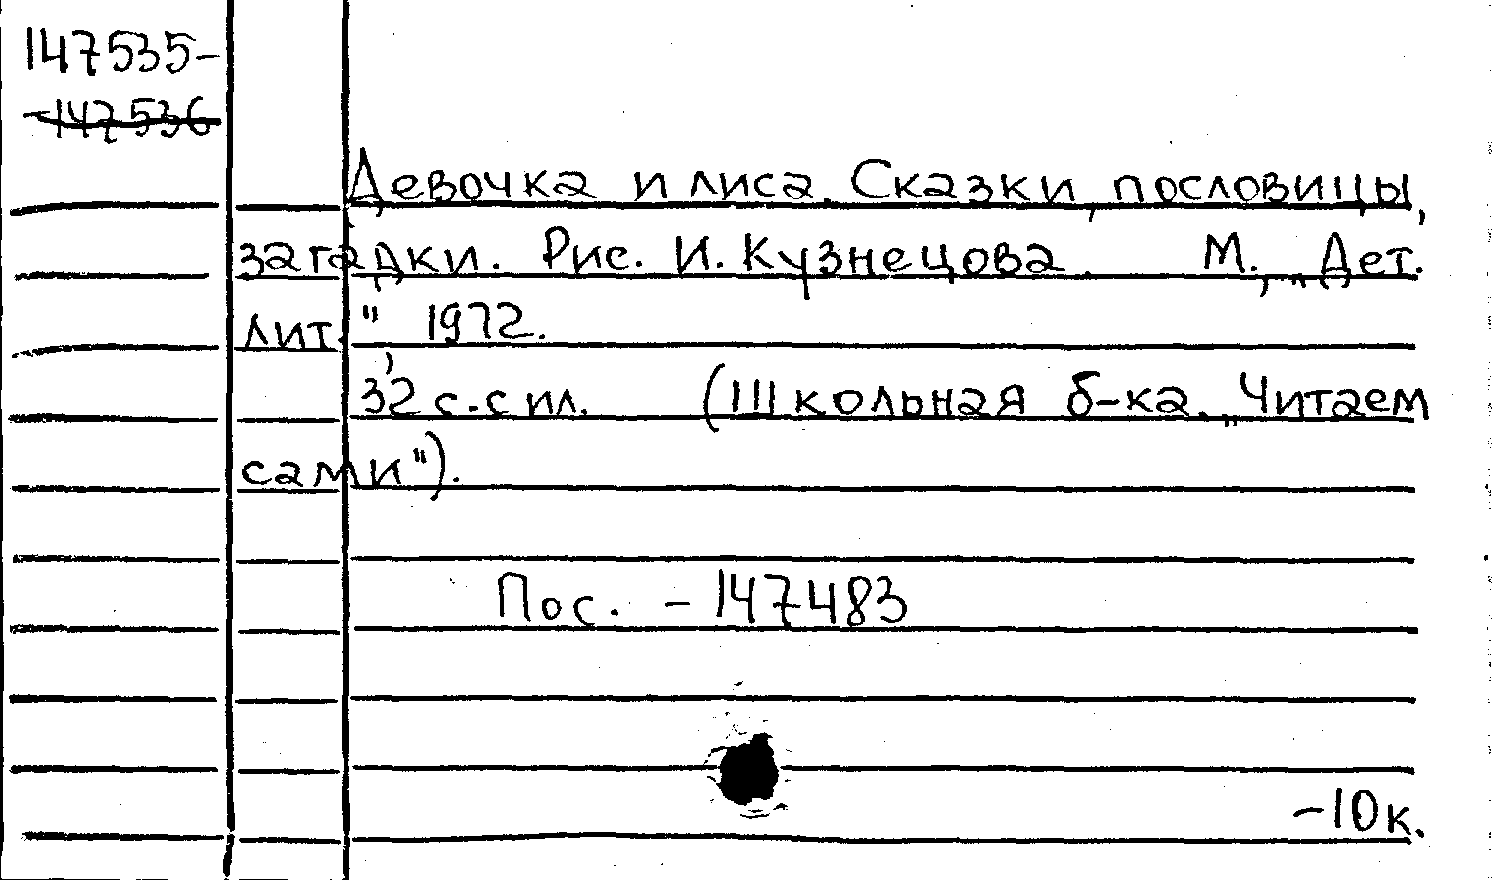 147535-
-147536
Девочка и лиса. Сказки, пословицы,
загадки. Рис. И. Кузнецова. М., „Дет.
лит." 1972.
32 с. с ил. (Школьная б-ка. „Читаем
сами").
Пос. - 147483
-10к.